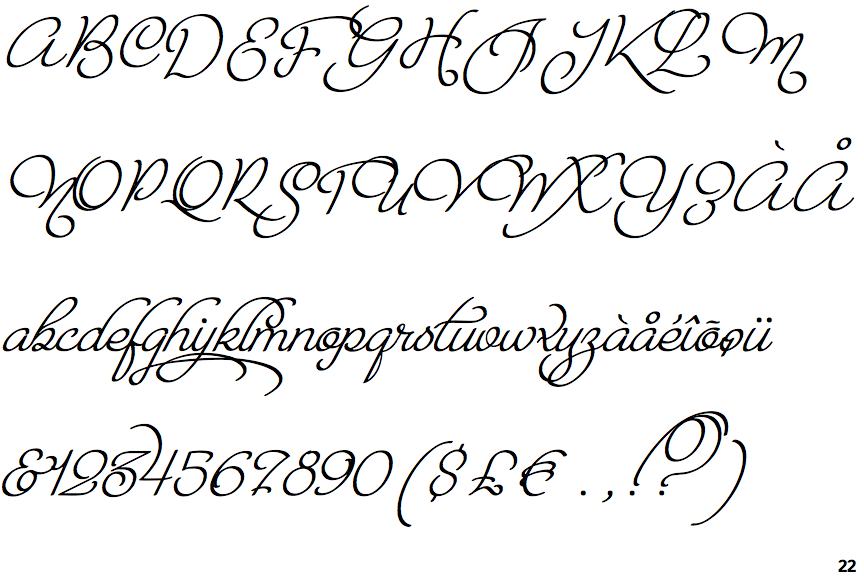 ABCDEFGHIJKLM
NOPQRSTUVWXYZÀÅ
abcdefghijklmnopqrstuvwxyzàåéîõøü
&1234567890($£€.,!?)
22